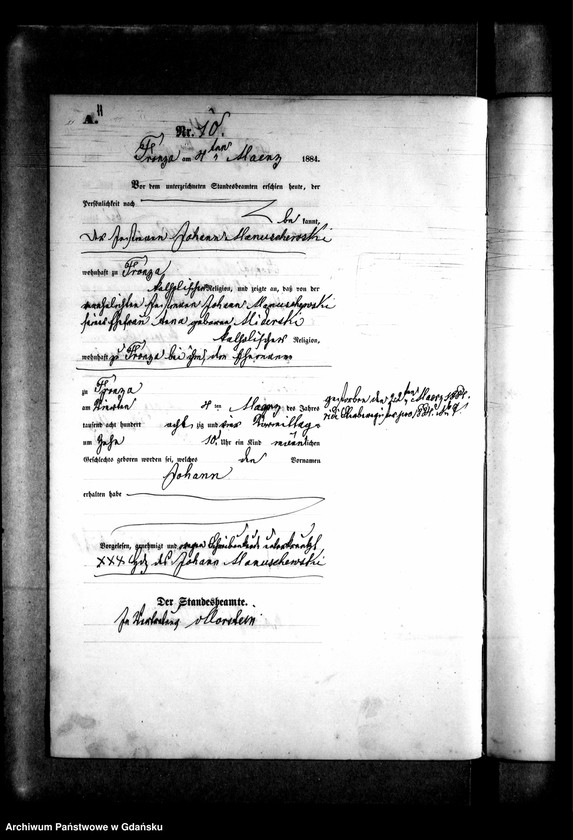 A.
Nr. 10.
Fronza am 4ten Maerz 1884.
Vor dem unterzeichneten Standesbeamten erschien heute, der
Persönlichkeit nach
be kannt,
der Johann Manuschewski
wohnhaft zu Fronza
katholischer Religion, und zeigte an, daß von der
verehelichten Johann Manuschewski
seiner Ehefrau Anna geborenen Miderski
katholischer Religion,
wohnhaft zu Fronza bei ihm dem Ehemanne
zu Fronza
am vierten 4 ten Maerz des Jahres
tausend acht hundert acht zig und vier Vormittags
um Zehn 10. Uhr ein Kind männlichen
Geschlechts geboren worden sei, welches den Vornamen
Johann
erhalten habe
gestorben den ten Maerz 1884.
pro 1884. No 9
Vorgelesen, genehmigt und wegen Schreibensunkunde unterkreuzt
XXX Hdz des Johann Manuschewski
Der Standesbeamte.
In Vertretung
Archiwum Państwowe w Gdańsku